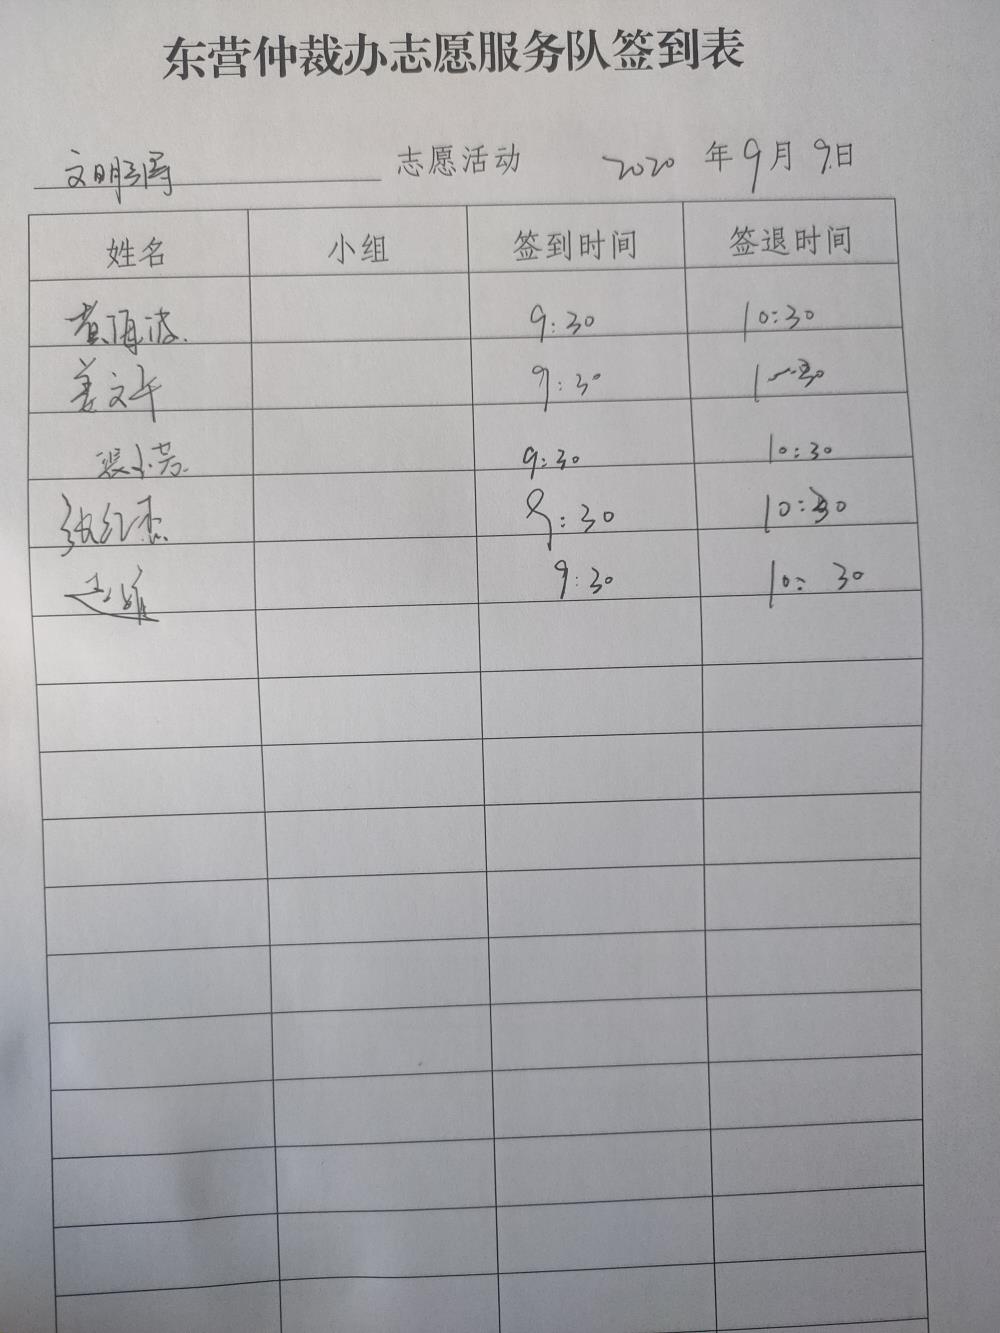 东营仲裁办志愿服务队签到表
文明 志愿活动 2020年9月9日
姓名 小组 签到时间 签退时间
黄海波 9:30 10:30
姜文午 9:30 10:30
张小芳 9:30 10:30
张红杰 9:30 10:30
赵 9:30 10:30